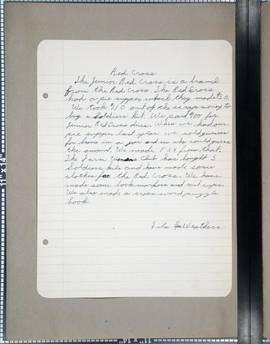 Red Cross
The Junior Red Cross is a branch
from the Red Cross. The Red Cross
had a pie supper which they made $
We took $10 out of the scrap money to
buy a Soldiers Kit. We paid for
Junior Red Cross dues. When we had our
pie supper last year we sold guesses
for beans in a jar and ones who could guess
the amount. We made from that.
The Farm Club has bought 3
Soldiers kits and have made some
clothes for the Red Cross. We have
made some bookmarkers and nut cups.
We also made a cross word puzzle
book.
Weathers
11" x 14"
11" x 14"